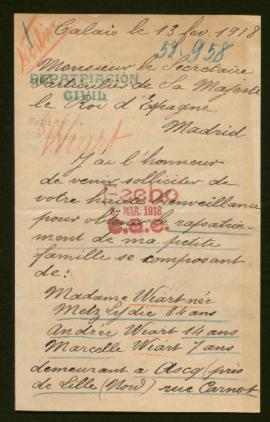 Calais le 13 fev. 1918
52,958
Monsieur le Secrétaire
REPATRIACIÓN
CIVIL
Particulier de Sa Majesté
le Roi d'Espagne
Madrid
Wiart
J'ai l'honneur
de venir solliciter de
votre haute bienveillance
8- MAR. 1918
pour obtenir le rapatrie-
ment de ma petite
famille se composant
de:
Madame Wiart née
Metz Lydie 34 ans
Andrée Wiart 14 ans
Marcelle Wiart 7 ans
demeurant à Ascq (près
de Lille (Nord) rue Carnot